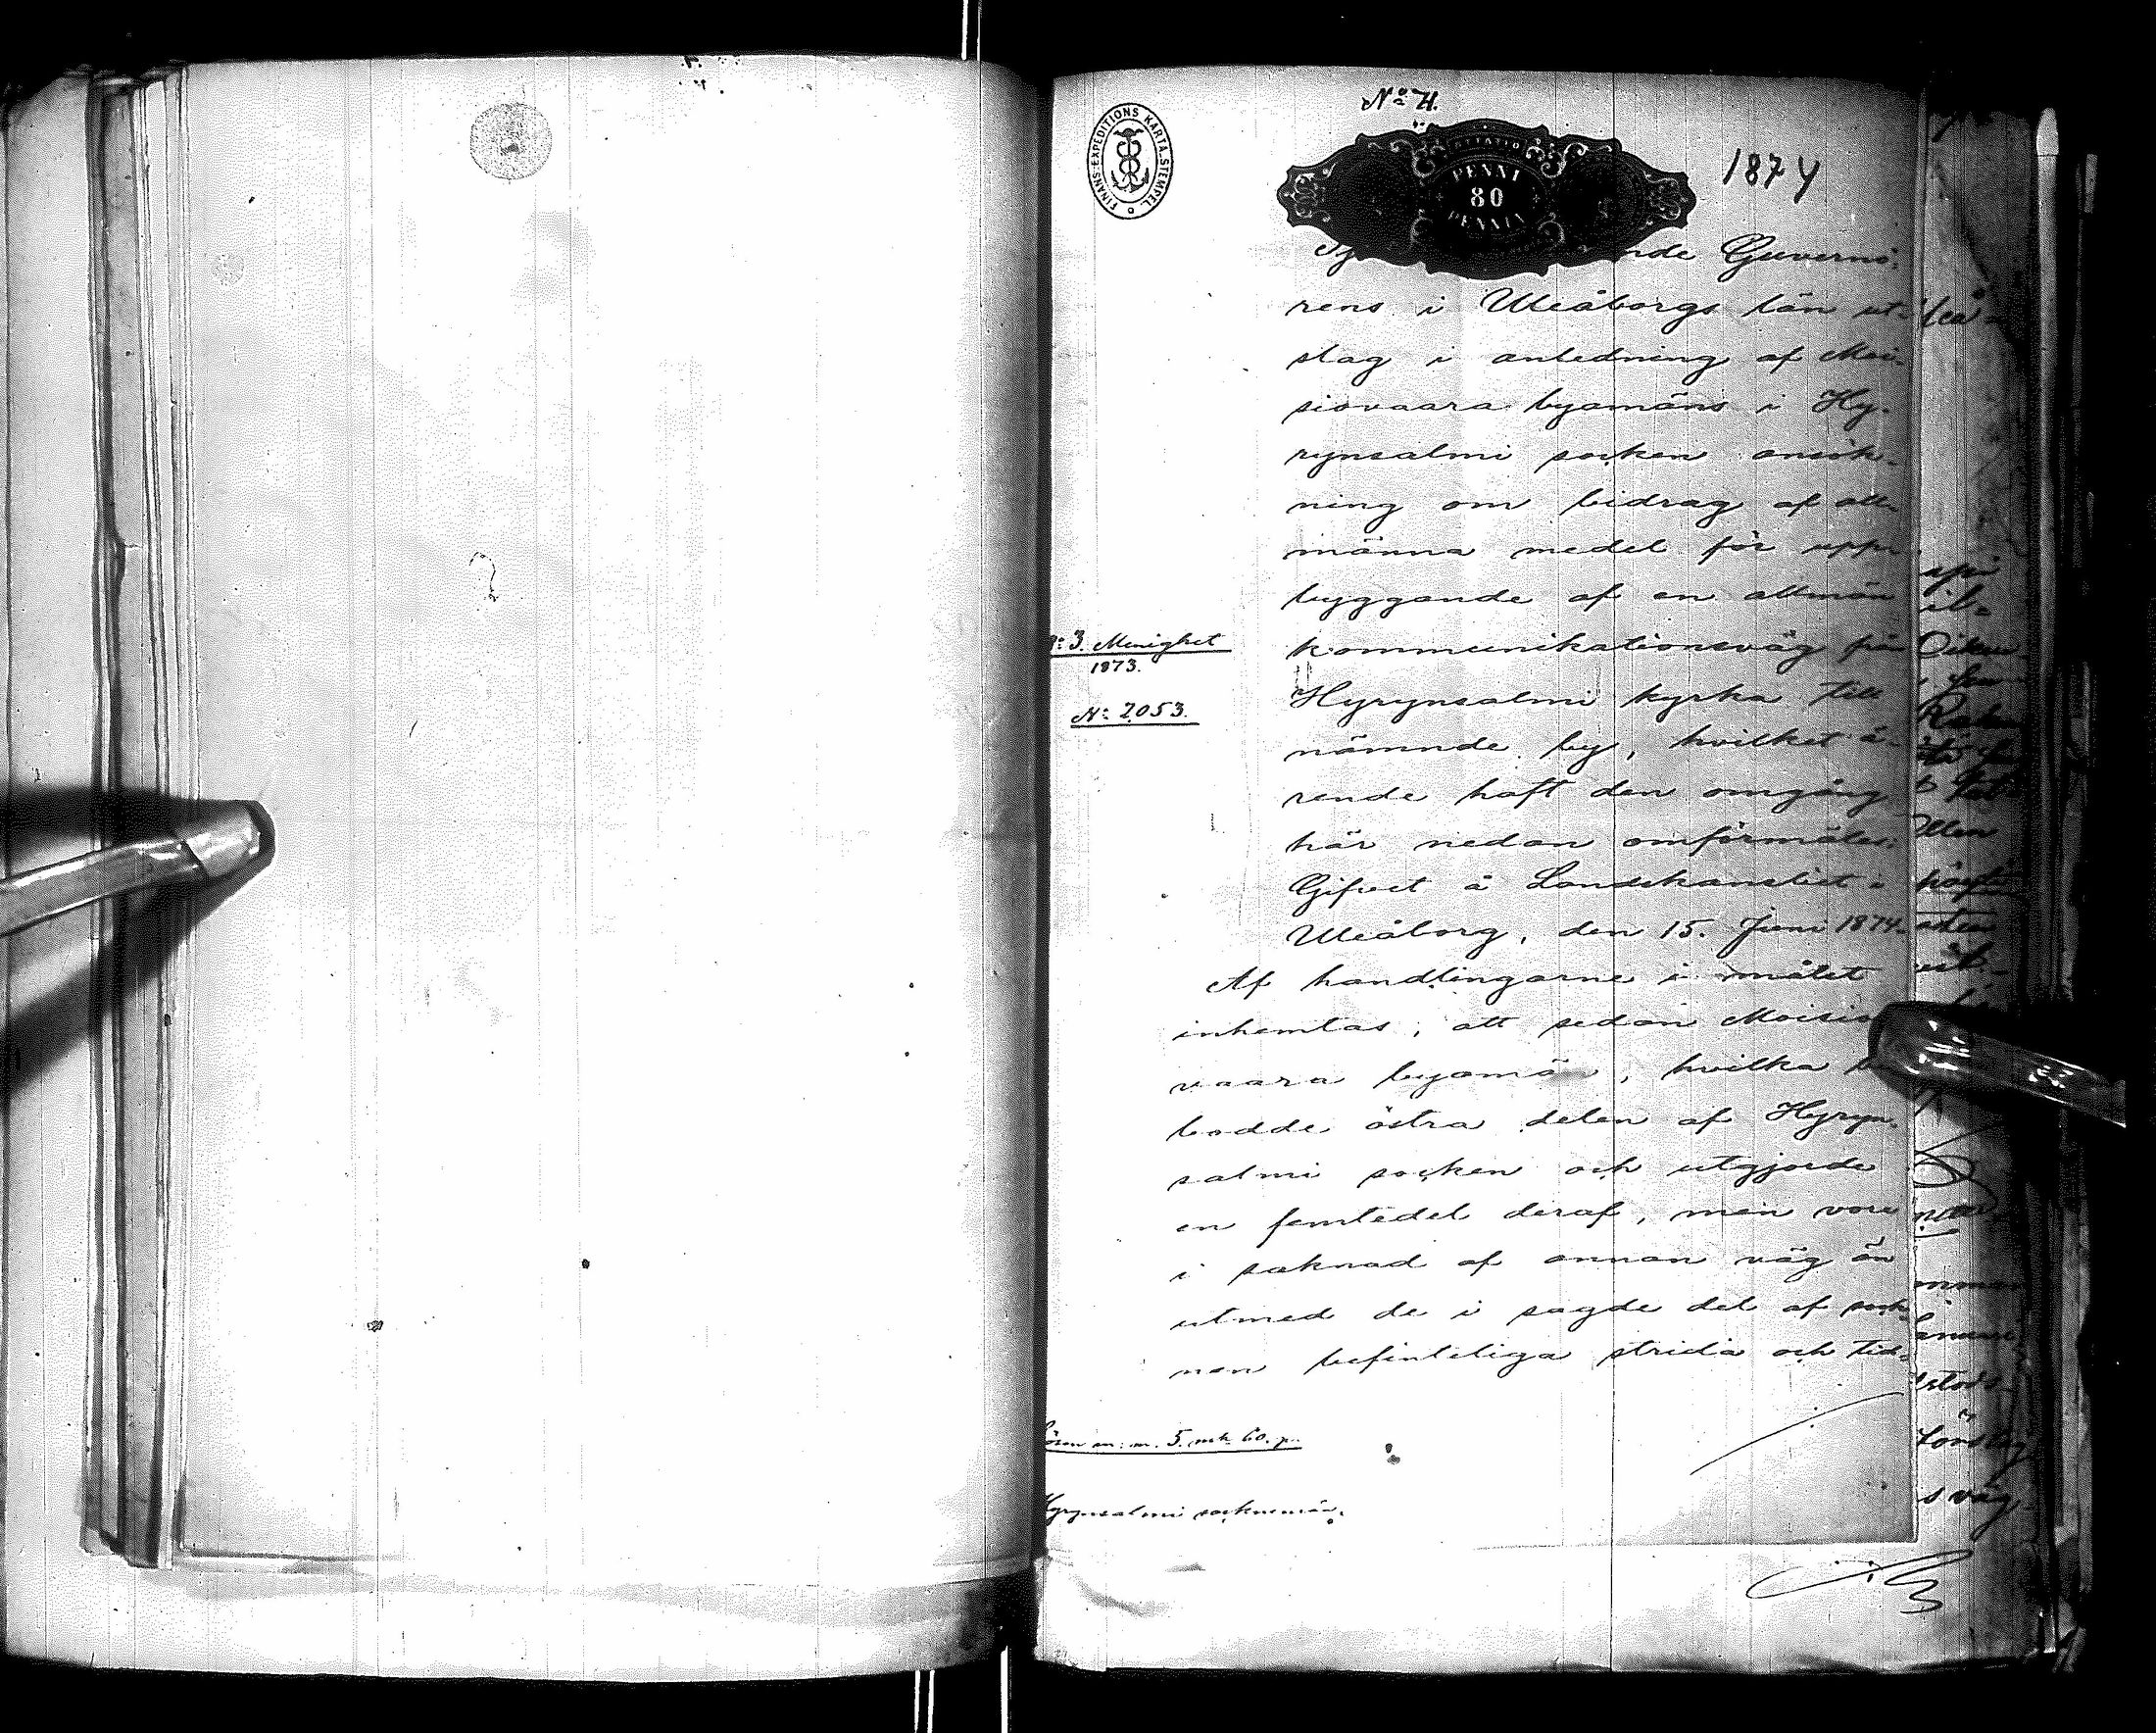 No 4.
FINANS-EXPEDITIONS KARTA-STEMPEL
PENNI
80
PENNIÄ
1874
Guvernö-
rens i Uleåborgs län ut-
slag i anledning af Moi-
siovaara byamäns i Hy-
rynsalmi socken ansök-
ning om bidrag af all-
männa medel för upp-
byggande af en allmän
No 3. Menighet
1873.
No 2053.
kommunikationsväg från
Hyrynsalmi kyrka till
nämnde by, hvilket ä-
rende haft den omgång
här nedan omförmäles;
Gifvet å Landskansliet i
Uleåborg, den 15. Juni 1874.
Af handlingarne i målet
inhemtas, att sedan Moisio
vaara byamän, hvilka
bodde östra delen af Hyryn-
salmi socken och utgjorde
en femtedel deraf, men vore
i saknad af annan väg än
utmed de i sagde del af sock
nen befintliga strida och tid-
Lösen m. m. 5. mk 60. p.
Hyrynsalmi sockenmän.